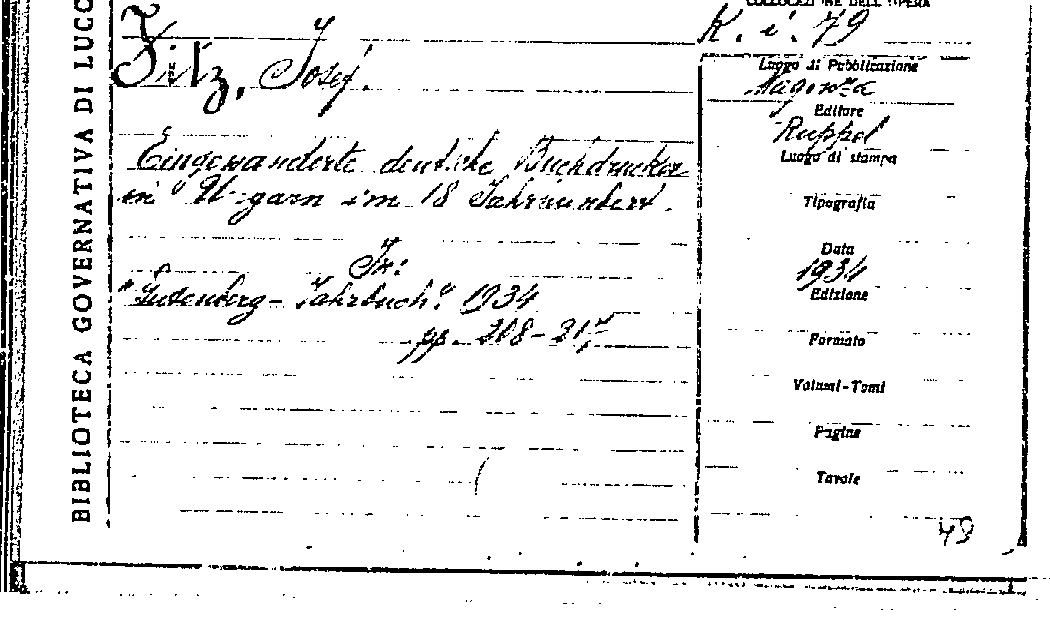 BIBLIOTECA GOVERNATIVA DI LUCC
COLLOCAZIONE DELL'OPERA
K. i. 79
Fitz, Josef.
Eingewanderte deutsche Buchdrucker
in Ungarn im 18 Jahrhundert.
In:
"Gutenberg-Jahrbuch". 1934
pp. 208-21
Luogo di Pubblicazione
Magonza
Editore
Ruppel
Luogo di stampa
Tipografia
Data
1934
Edizione
Formato
Volumi-Tomi
Pagine
Tavole
49